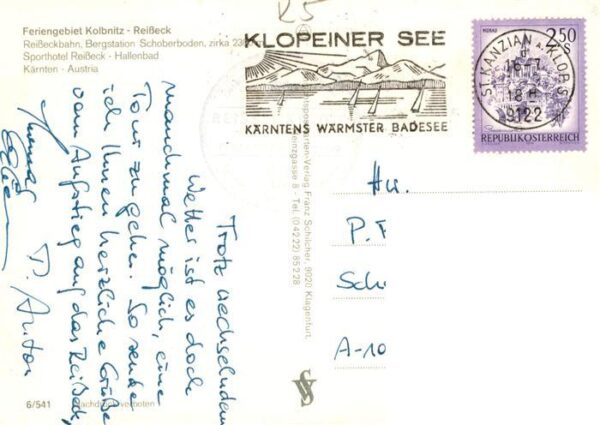 Feriengebiet Kolbnitz - Reißeck
Reißeckbahn, Bergstation Schoberboden, zirka
Sporthotel Reißeck - Hallenbad
Kärnten - Austria
KLOPEINER SEE
KÄRNTENS WÄRMSTER BADESEE
2.50
S
ST. KANZIAN
9122
REPUBLIK ÖSTERREICH
Verlag Franz Schilcher, 9020 Klagenfurt,
8 - Tel. (0 42 22) 85 2 28
Trotz wechselndem
Wetter ist es doch
manchmal möglich, eine
Tour zu gehen. So sende
ich Ihnen herzliche Grüße
vom Aufstieg auf das Reißeck,
P. Anton
P. F
Sch
A-10
6/541
Nachdruck verboten